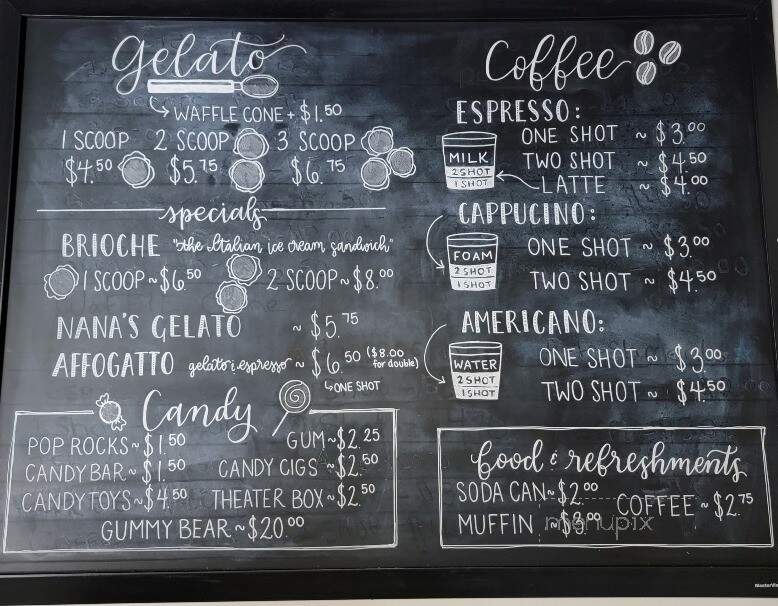 Gelato
WAFFLE CONE + $1.50
1 SCOOP 2 SCOOP 3 SCOOP
$4.50 $5.75 $6.75
specials
BRIOCHE "the Italian ice cream sandwich"
1 SCOOP ~ $6.50 2 SCOOP ~ $8.00
NANA'S GELATO ~ $5.75
AFFOGATTO gelato & espresso ~ $6.50 ($8.00 for double)
ONE SHOT
Candy
POP ROCKS ~ $1.50 GUM ~ $2.25
CANDY BAR ~ $1.50 CANDY CIGS ~ $2.50
CANDY TOYS ~ $4.50 THEATER BOX ~ $2.50
GUMMY BEAR ~ $20.00
Coffee
ESPRESSO:
ONE SHOT ~ $3.00
TWO SHOT ~ $4.50
LATTE ~ $4.00
MILK
2 SHOT
1 SHOT
CAPPUCINO:
ONE SHOT ~ $3.00
TWO SHOT ~ $4.50
FOAM
2 SHOT
1 SHOT
AMERICANO:
ONE SHOT ~ $3.00
TWO SHOT ~ $4.50
WATER
2 SHOT
1 SHOT
food & refreshments
SODA CAN ~ $2.00
COFFEE ~ $2.75
MUFFIN ~ $3.00
menupix